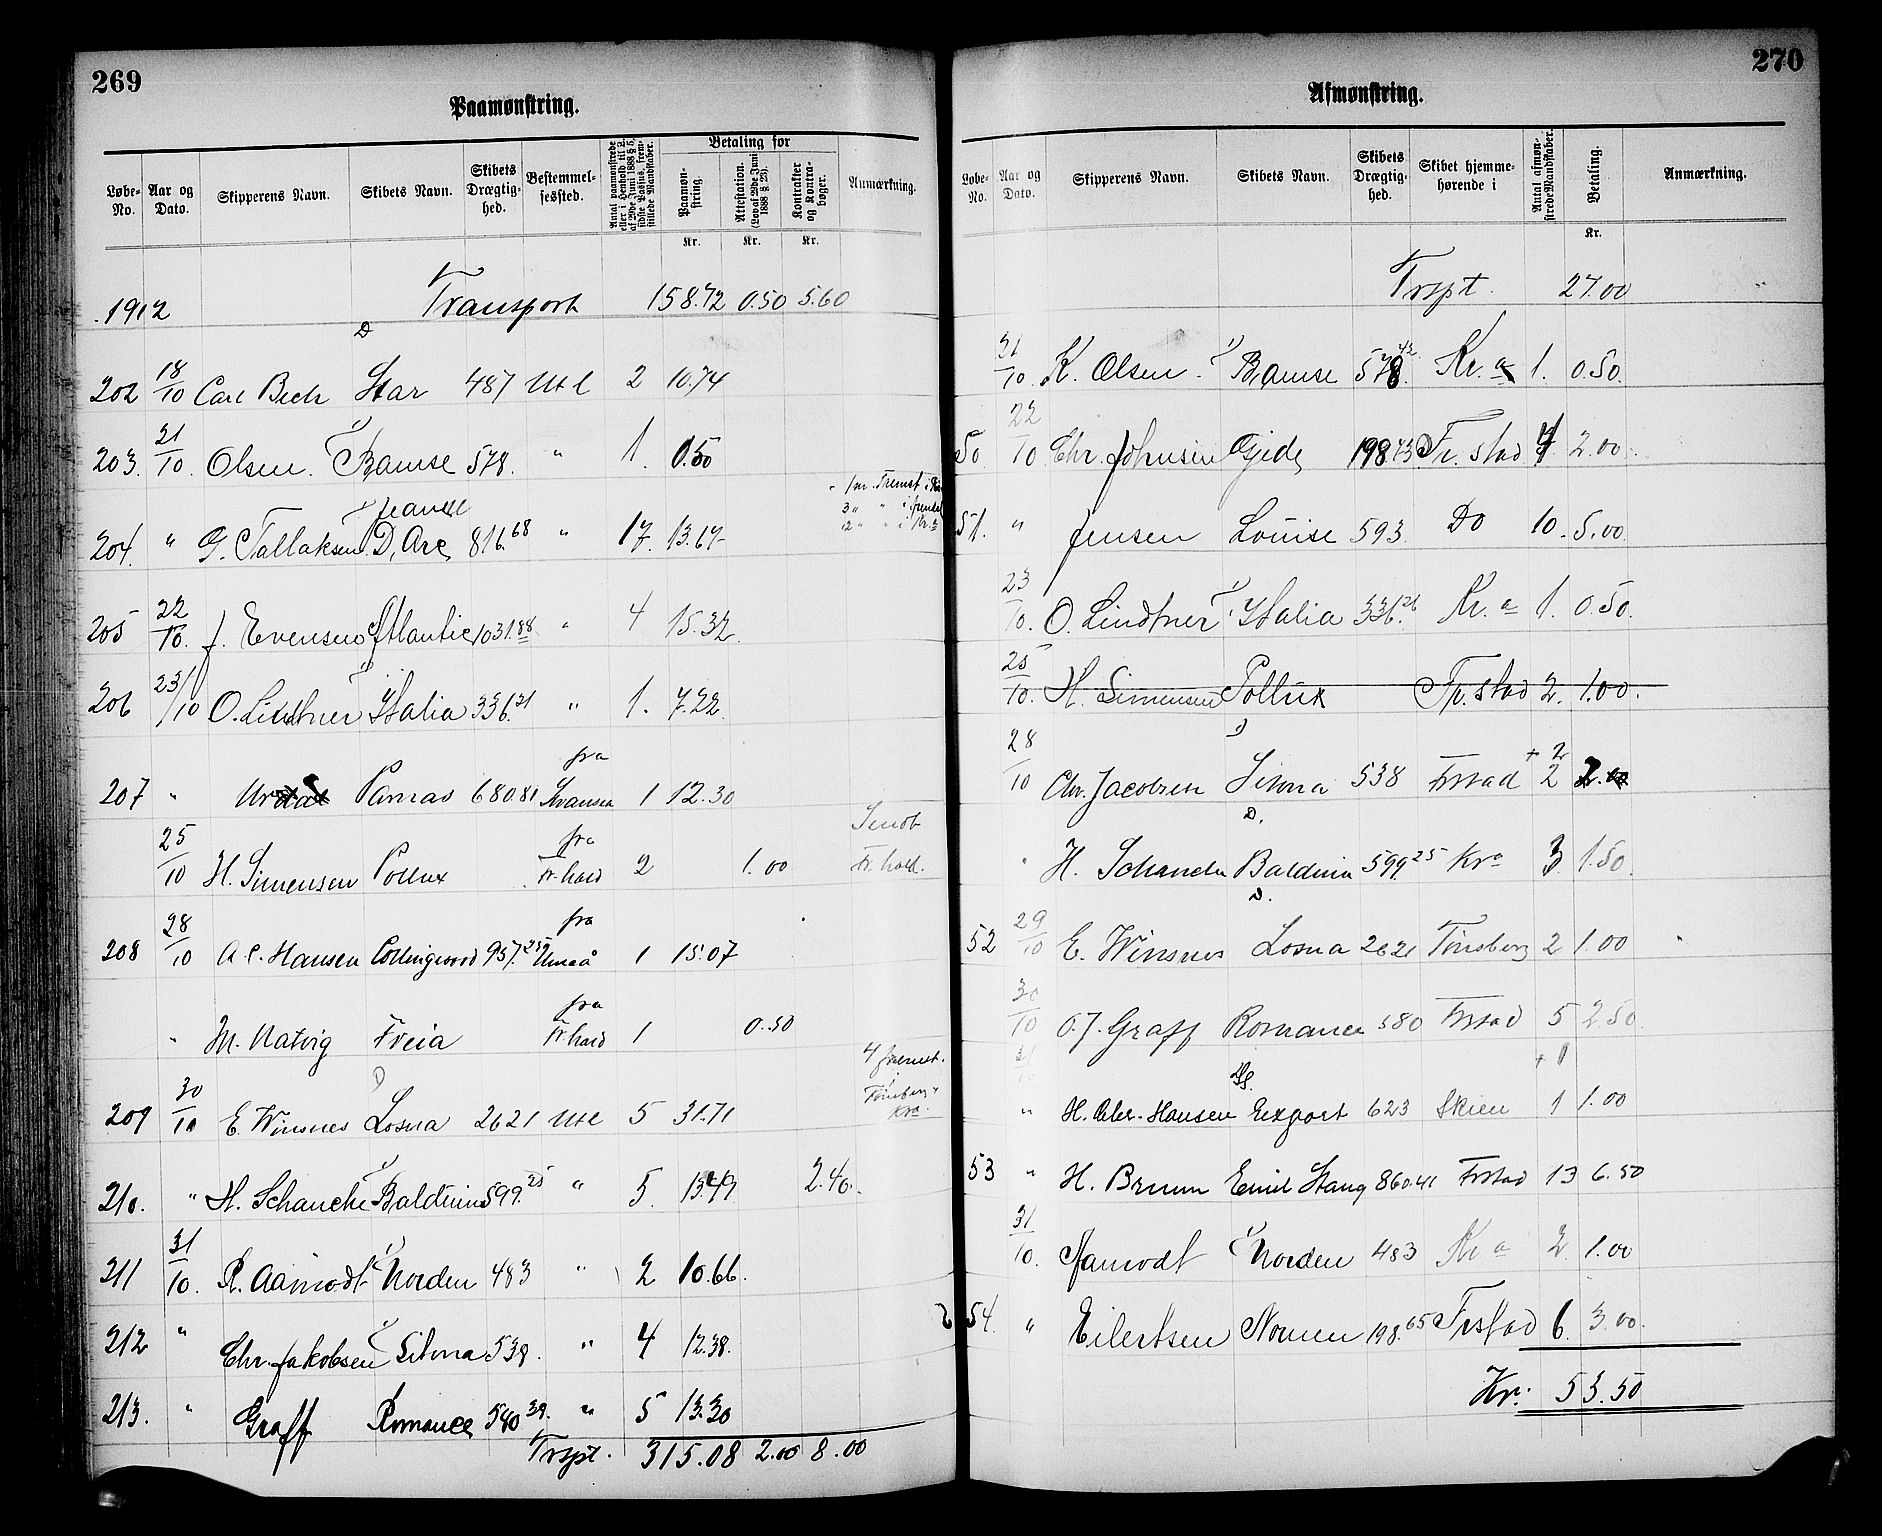 269
Paamønstring.
Løbe-No. Aar og Dato. Skipperens Navn. Skibets Navn. Skibets Drægtig-hed. Bestemmel-sessted. Antal paamønstrede eller i Henhold til L. af 29de Juni 1888 § 5, sidste Passus, frem-stillede Mandskaber. Betaling for Paamøn-string. Attestation. (Lov af 29de Juni 1888 § 23). Kontrakter og Kontra-bøger. Anmærkning.
Kr. Kr. Kr.
1912 Transport 158.72 0.50 5.60
202 18/10 Carl Bech D Star 487 Utl 2 10.74
203. 21/10 Olsen. Bamse 578. " 1. 0.50
204. " G. Tallaksen Jeanne D, Arc 816.68 " 17. 13.67 1 m. Fremst i 3 " " i 2 " " i Kr.a
205 22/10. J. Evensen Atlantic 1031.88 " 4 15.32.
206 23/10 O. Lindtner Italia 336.21 " 1. 7.22.
207 " Parnas 680.81 fra Svansea 1 12.30
25/10 H. Simensen Pollux fra Fr.hald 2 1.00 Sendt Fr.hald.
208 28/10 A C. Hansen Collingwood 957.25 fra Umeå 1 15.07
" M. Natvig Freia fra Fr.hald 1 0.50
209 30/10 E. Winsnes D Losna 2621 Utl 5 31.71 4 fremst. i Tønsberg Kra.
210. " H. Schanche Balduin 599.25 " 5. 13.49 2.40.
211 31/10. R. Aamodt Norden 483 " 2 10.66.
212 " Chr. Jakobsen Silvia 538. " 4 12.38.
213. " Graff Romance 580 39. " 5 13.30
Trspt. 315.08 2.00 8.00
270
Afmønstring.
Løbe-No. Aar og Dato. Skipperens Navn. Skibets Navn. Skibets Drægtig-hed. Skibet hjemme-hørende i Antal afmøn-strede Mandskaber. Betaling. Anmærkning.
Kr.
Trspt. 27.00
21/10. K. Olsen. Bamse 578.42 Kr.a 1. 0.50.
50. 22/10 Chr. Johnsen Gjede 198 43 Fr.stad 4 2.00.
51. " Jensen Louise 593. Do 10. 5.00.
23/10. O. Lindtner Italia 336.21 Kr.a 1. 0.50.
25/10. H. Simensen Pollux Fr.stad 2. 1.00.
28/10 Chr. Jacobsen D Silvia 538 Frstad + 2 2 2.00
" H. Schanche D. Balduin 599 25 Kra 3 1.50.
52 29/10 E. Winsnes D. Losna 2621 Tønsberg 2 1.00
30/10 O.J. Graff Romance 580 Frstad 5 2.50.
31/10 + 1
" H. Chr. Hansen Export 623 Skien 1 1.00
53 " H. Bruun Emil Stang 860.41 Frstad 13 6.50
31/10. Aamodt Norden 483 Kr a 2 1.00
54. " Eilertsen Nornen 198.65 Frstad 6. 3.00.
Kr. 53.50